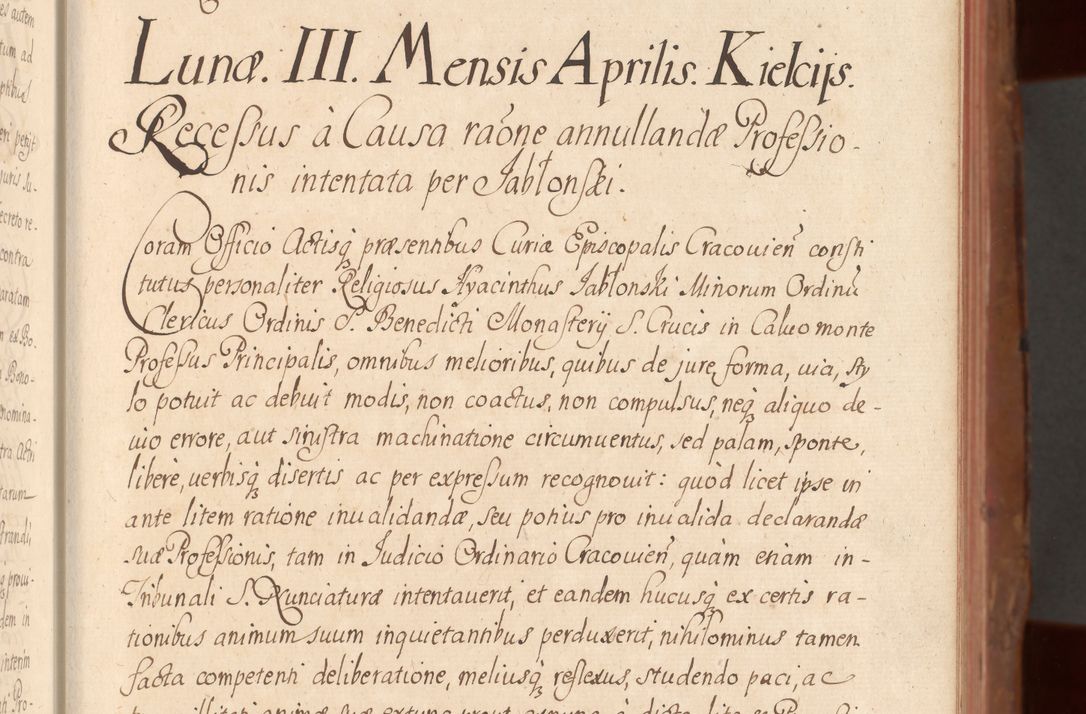 Lunæ. III. Mensis Aprilis. Kielcijs.
Recessus à Causa raõne annullandæ Professio-
nis intentata per Jabłonski.
Coram Officio Actisq3 præsentibus Curiæ Episcopalis Cracovień consti
tutus personaliter Religiosus Hyacinthus Jabłonski Minorum Ordinũ
Clericus Ordinis S. Benedicti Monasterij S. Crucis in Caluo monte
Professus Principalis, omnibus melioribus, quibus de jure, forma, uia, sty
lo potuit ac debuit modis, non coactus, non compulsus, neq3 aliquo de-
uio errore, aut sinistra machinatione circumuentus, sed palam, sponte,
liberè, uerbisq3 disertis ac per expressum recognouit: quòd licet ipse in
ante litem ratione inualidandæ, seu potius pro inualida declarandæ
suæ Professionis, tam in Judicio Ordinario Cracouień, quàm etiam in-
Tribunali S. Nunciaturæ intentauerit, et eandem hucusq3 ex certis ra-
tionibus animum suum inquietantibus perduxerit, nihilominus tamen
facta competenti deliberatione, meliusq3 reflexus, studendo paci, ac